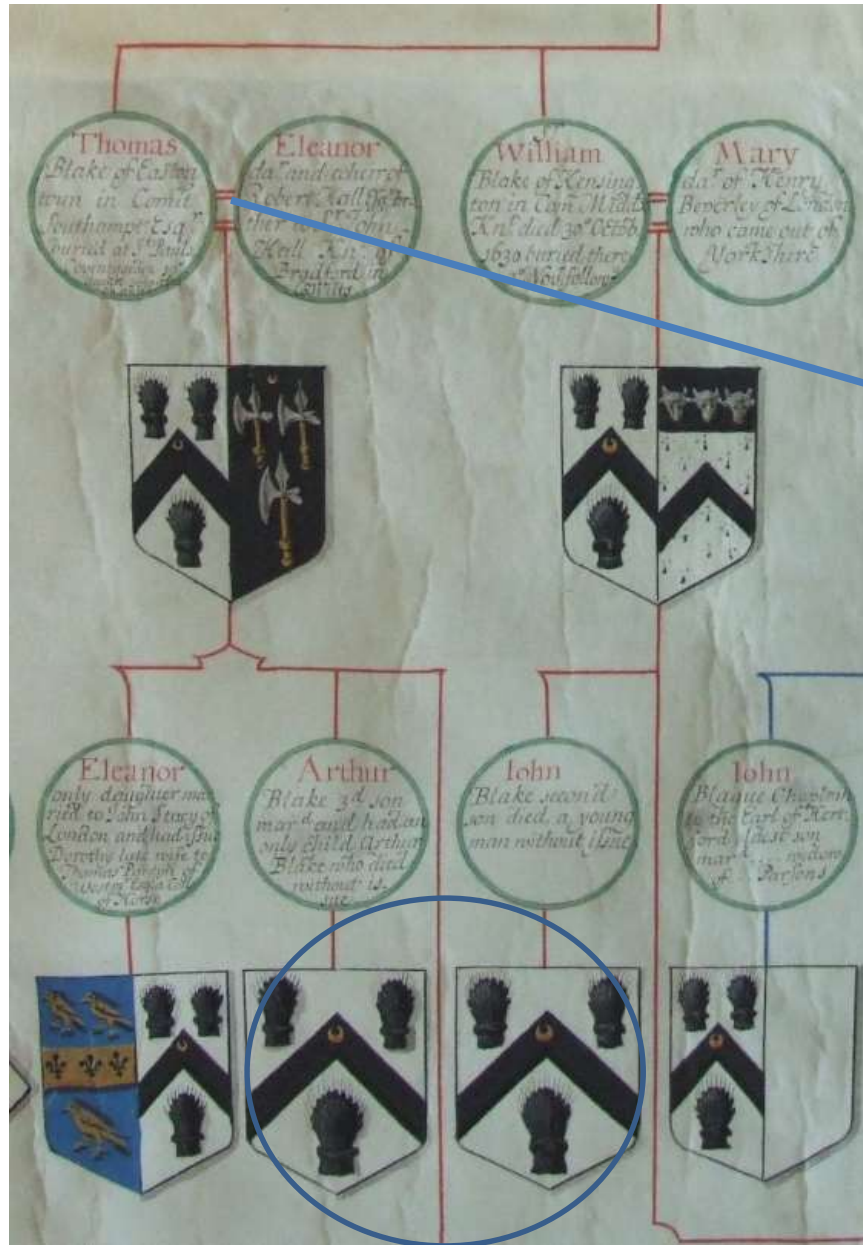 Thomas
Blake of Easton
town in Comit.
Southampt. Esqr.
buried at St. Pauls
Eleanor
dar. and coheir of
Robert Hall
ther to Sr. John
Hall Knt. of
Bradford in
Wilts
William
Blake of Kensing
ton in Com Midds
Knt. died 30th Octob.
1630 buried there
Nov. follow
Mary
dar. of Henry
Beverley of London
who came out of
York Shire
Eleanor
only daughter mar
ried to John Stacy of
London and had issue
Dorothy late wife to
Thomas
of Horse
Arthur
Blake 3d son
mard. and had an
only child Arthur
Blake who died
without is-
sue
Iohn
Blake second
son died a young
man without issue
Iohn
Blague Chaplain
to the Earl of Hert
ford eldest son
mard. ... widdow
of ... Parsons